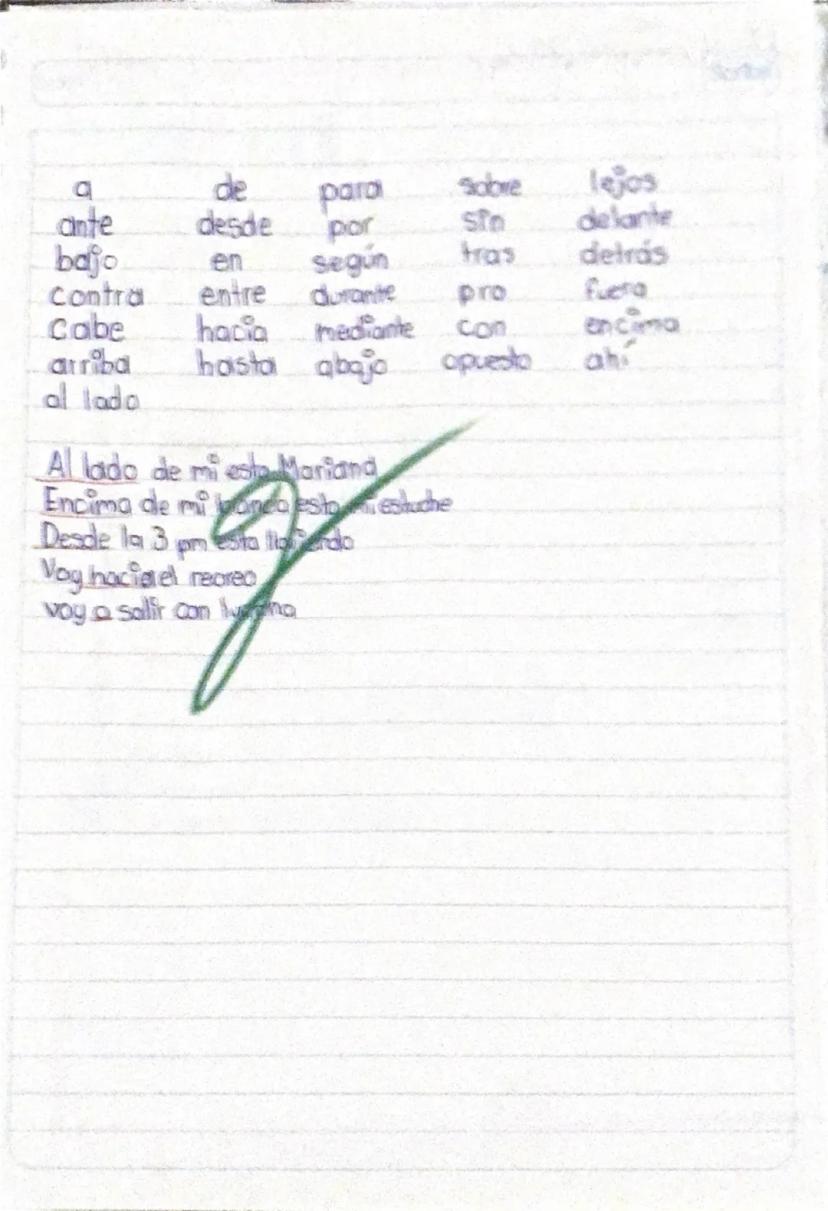 Scribe
a de para sobre lejos
ante desde por sin delante
bajo en según tras detrás
contra entre durante pro fuera
Cabe hacia mediante con encima
arriba hasta abajo opuesto ahí
al lado
Al lado de mi esta Mariana
Encima de mi banco esta mi estuche
Desde la 3 pm esta lloviendo
Voy hacia el recreo
voy a salir con